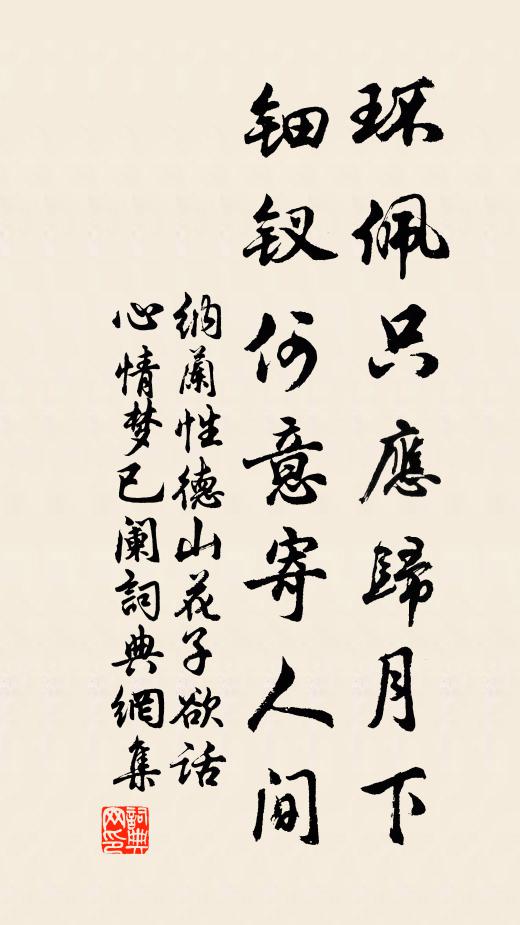 环佩只應歸月下
钿钗何意寄人间
纳蘭性德山花子欲话
心情梦已阑詞典網集
詞典
网印